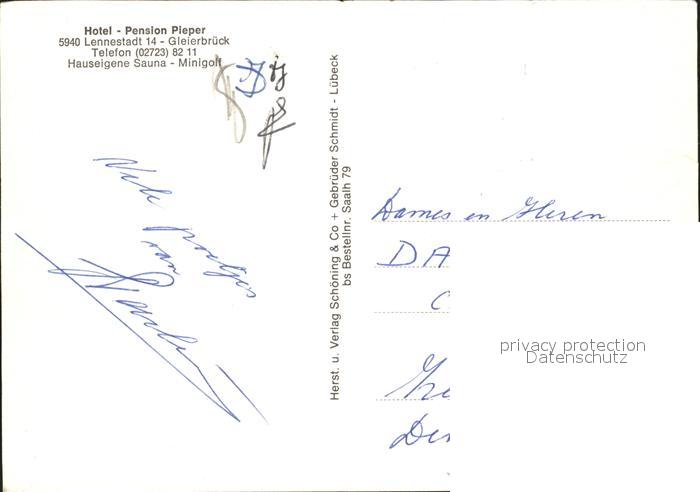 Hotel - Pension Pieper
5940 Lennestadt 14 - Gleierbrück
Telefon (02723) 82 11
Hauseigene Sauna - Minigolf
van
Herst. u. Verlag Schöning & Co + Gebrüder Schmidt - Lübeck
bs Bestellnr. Saalh 79
Dames en Heren
DA
C
privacy protection
Datenschutz